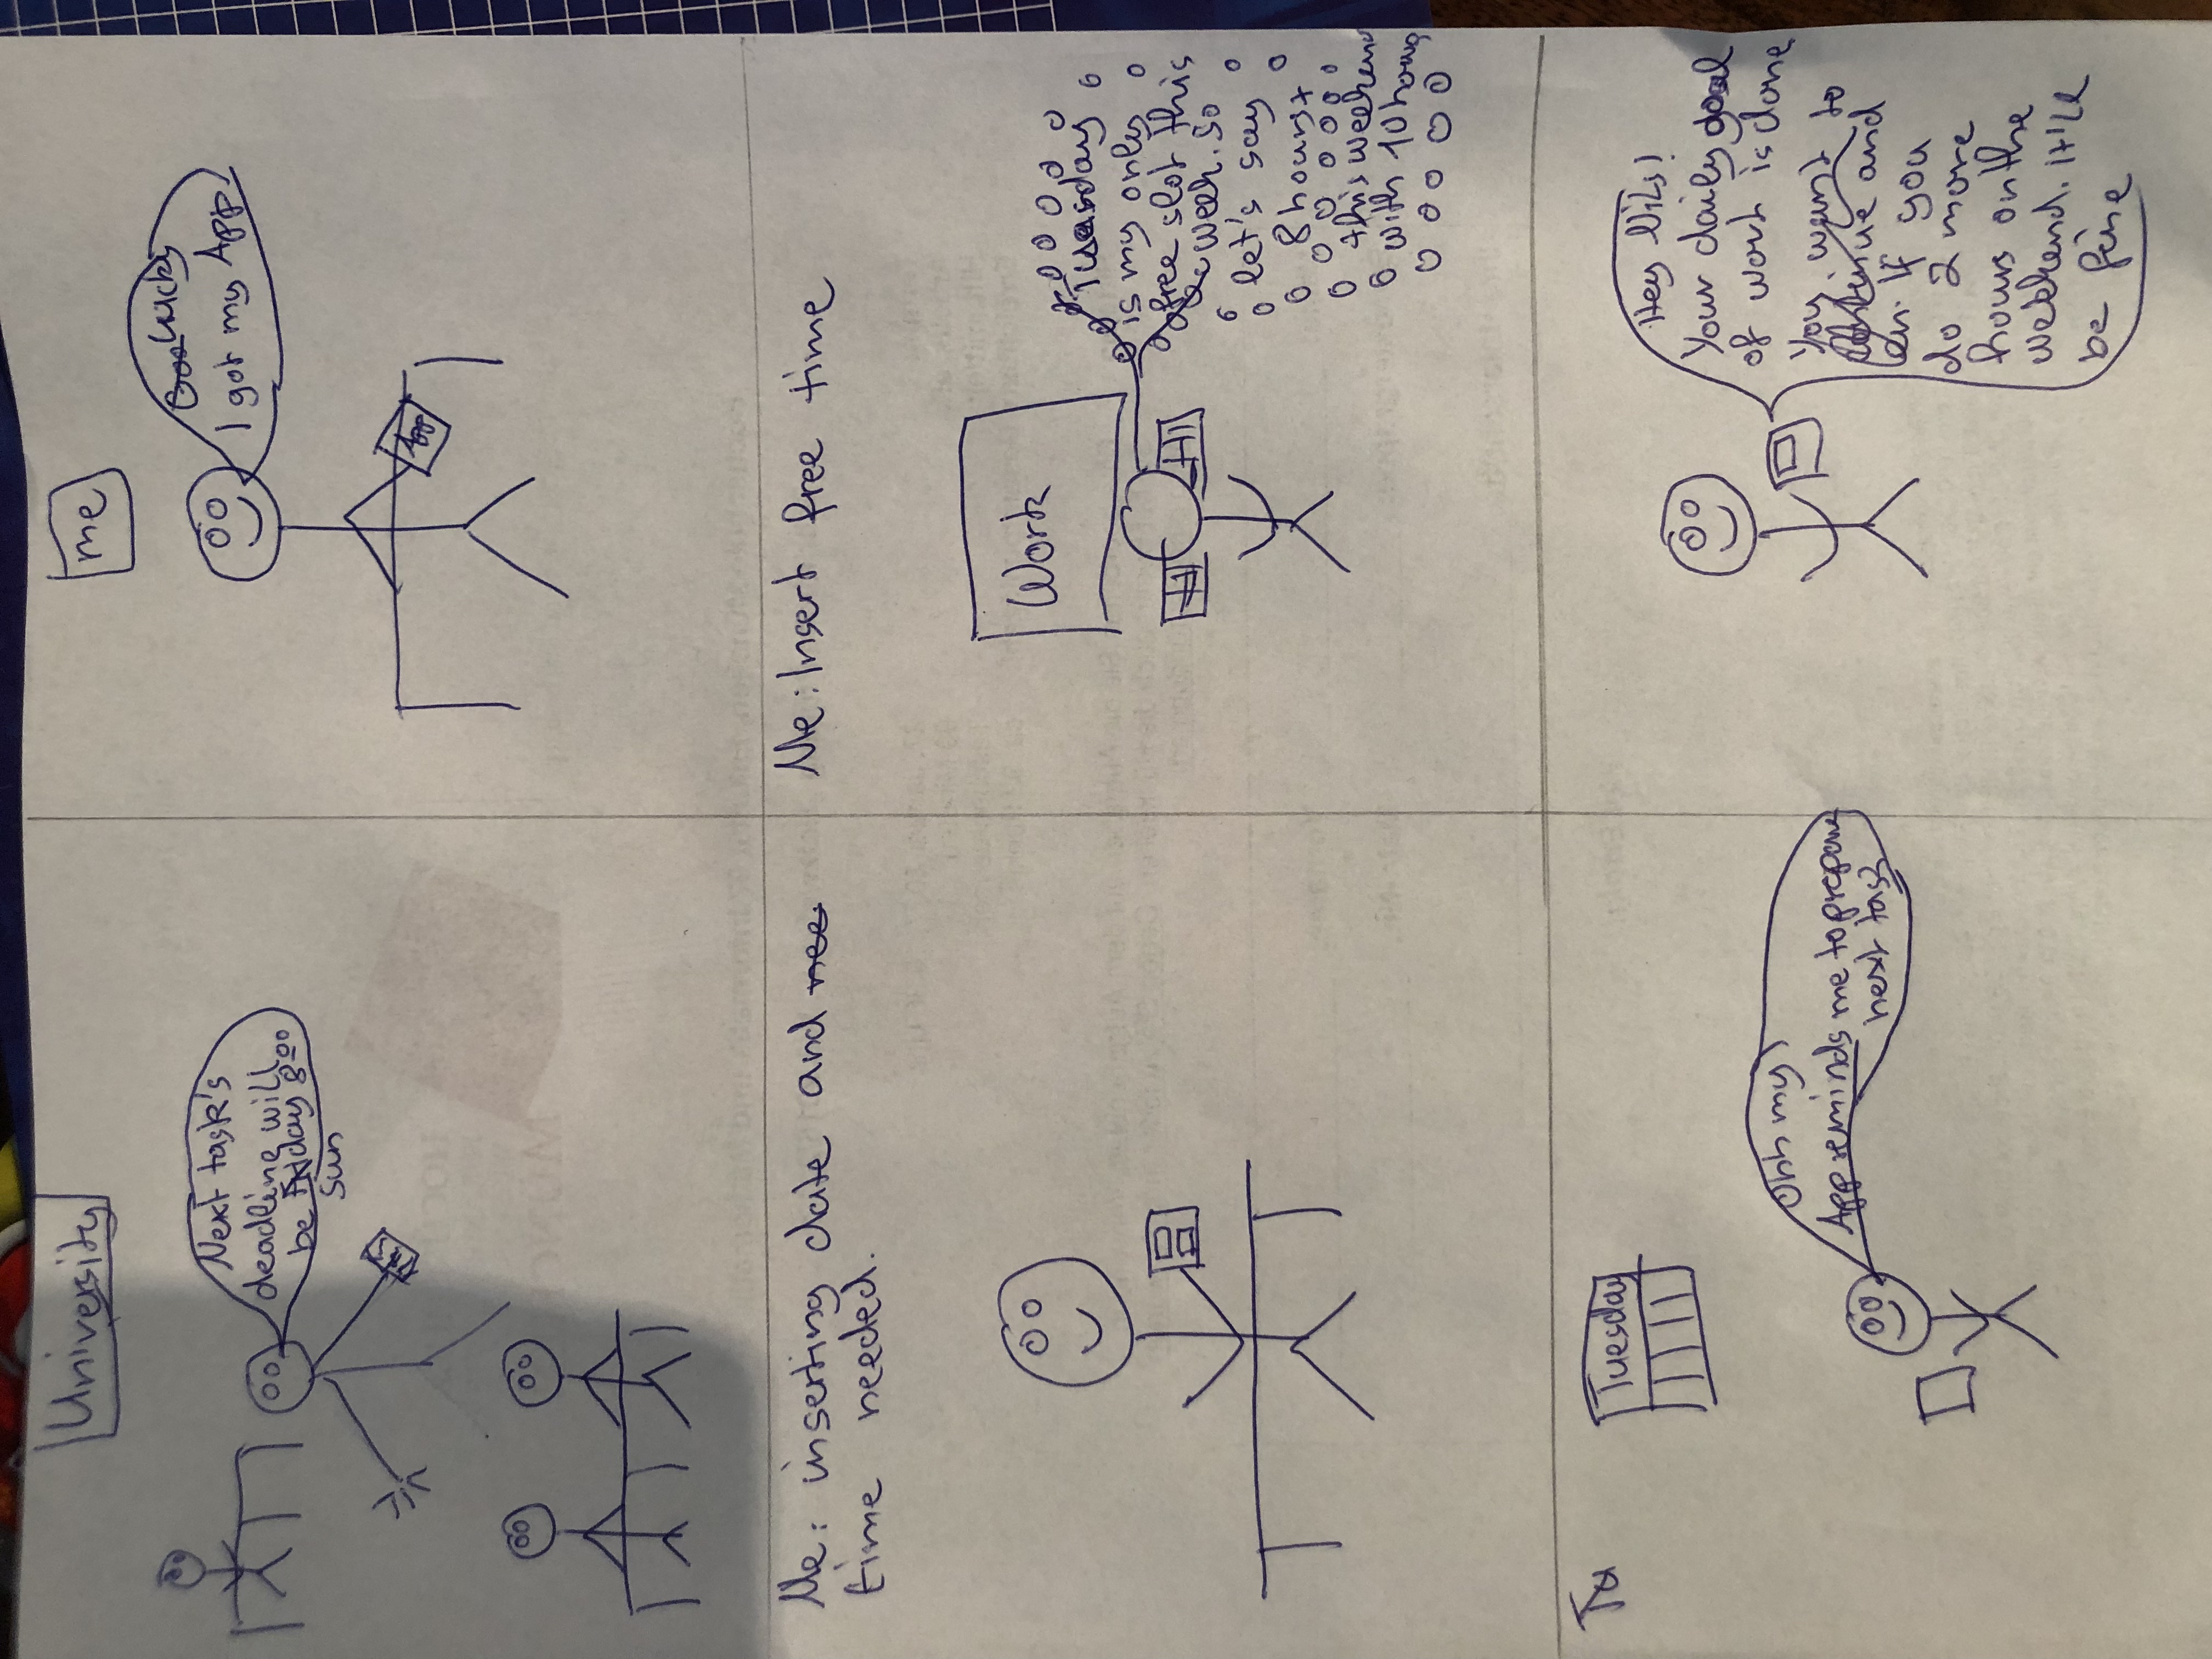 University
Next task's
deadline will
be day 8:00
Sun
me
Lucky
I got my App
App
Me: inserting date and nee
time needed.
Me: Insert free time
Work
Tuesday
is my only
free slot this
week. So
let's say
8 hours +
this weekend
with 10 hours
Tu
Tuesday
Ohh my
App reminds me to prepare
next task
Hey Nils!
Your daily goal
of work is done
You want to
continue and
If you
do 2 more
hours on the
weekend. it'll
be fine